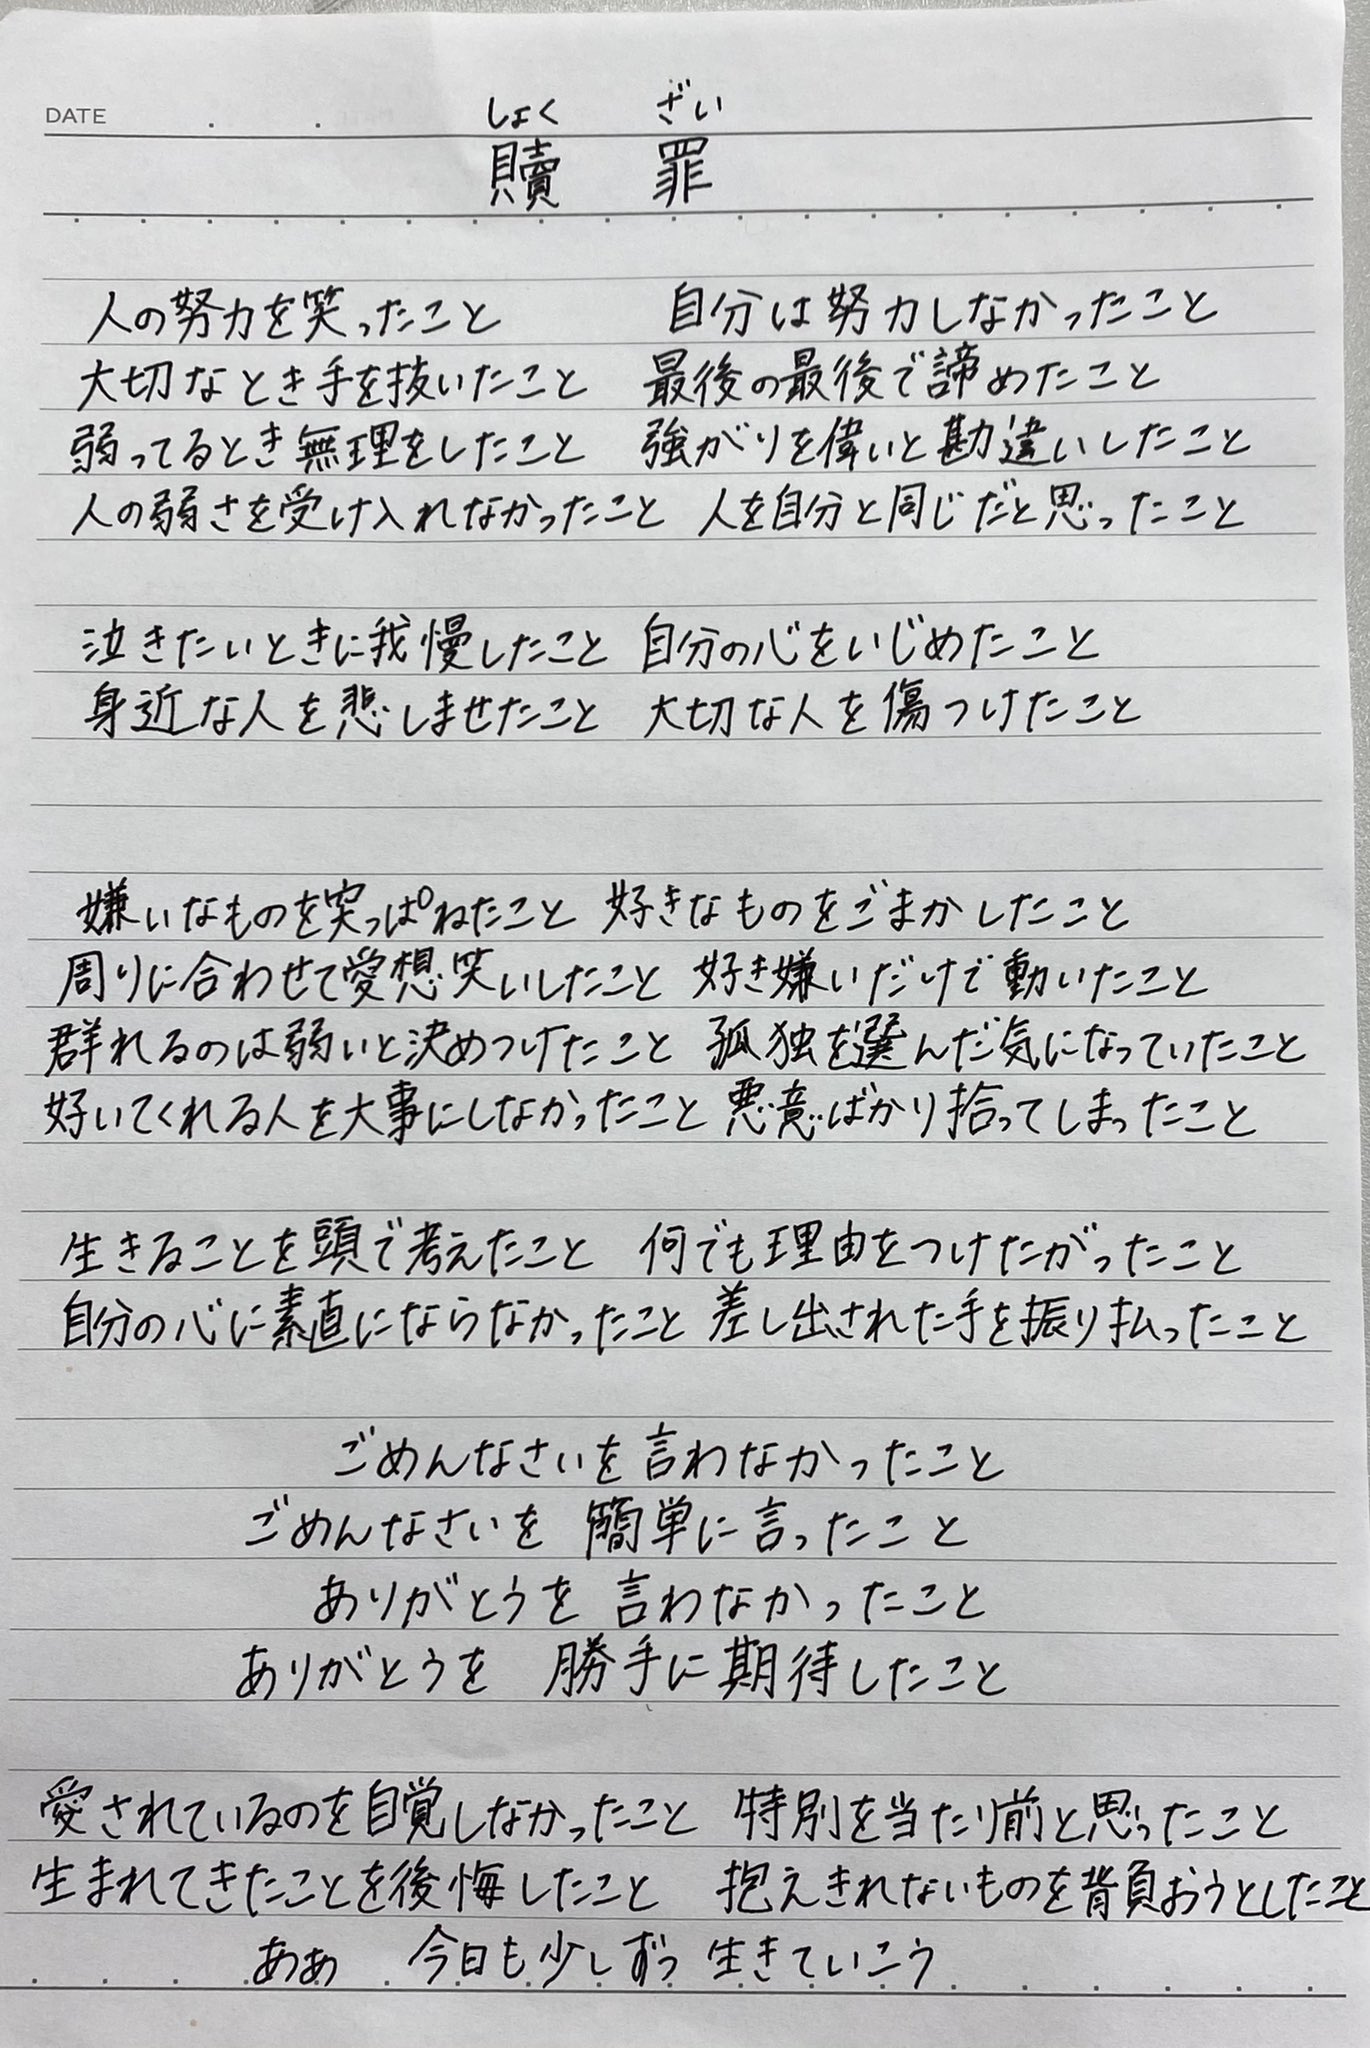 DATE
しょく ざい
贖 罪
人の努力を笑ったこと 自分は努力しなかったこと
大切なとき手を抜いたこと 最後の最後で諦めたこと
弱ってるとき無理をしたこと 強がりを偉いと勘違いしたこと
人の弱さを受け入れなかったこと 人を自分と同じだと思ったこと
泣きたいときに我慢したこと 自分の心をいじめたこと
身近な人を悲しませたこと 大切な人を傷つけたこと
嫌いなものを突っぱねたこと 好きなものをごまかしたこと
周りに合わせて愛想笑いしたこと 好き嫌いだけで動いたこと
群れるのは弱いと決めつけたこと 孤独を選んだ気になっていたこと
好いてくれる人を大事にしなかったこと 悪意ばかり拾ってしまったこと
生きることを頭で考えたこと 何でも理由をつけたがったこと
自分の心に素直にならなかったこと 差し出された手を振り払ったこと
ごめんなさいを言わなかったこと
ごめんなさいを 簡単に言ったこと
ありがとうを 言わなかったこと
ありがとうを 勝手に期待したこと
愛されているのを自覚しなかったこと 特別を当たり前と思ったこと
生まれてきたことを後悔したこと 抱えきれないものを背負おうとしたこと
ああ 今日も少しずつ 生きていこう